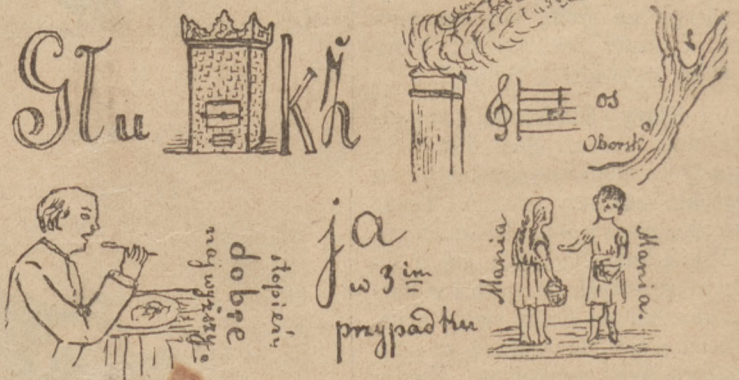 Gł u kż
os
s
Oborski
stopień
dobrze
najwyższy
ja
w 3im
przypadku
Mania
Mania.